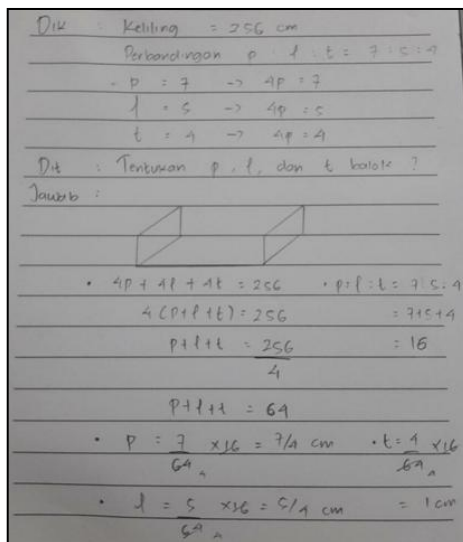 Dik : Keliling = 256 cm
Perbandingan p : l : t = 7 : 5 : 4
- p = 7 -> 4p = 7
l = 5 -> 4p = 5
t = 4 -> 4p = 4
Dit : Tentukan p, l, dan t balok ?
Jawab :
• 4p + 4l + 4t = 256 • p : l : t = 7 : 5 : 4
4 (p+l+t) = 256 = 7+5+4
p+l+t = 256/4 = 16
p+l+t = 64
• p = 7/64 4 x16 = 7/4 cm • t = 4/64 4 x16
• l = 5/64 4 x16 = 5/4 cm = 1 cm